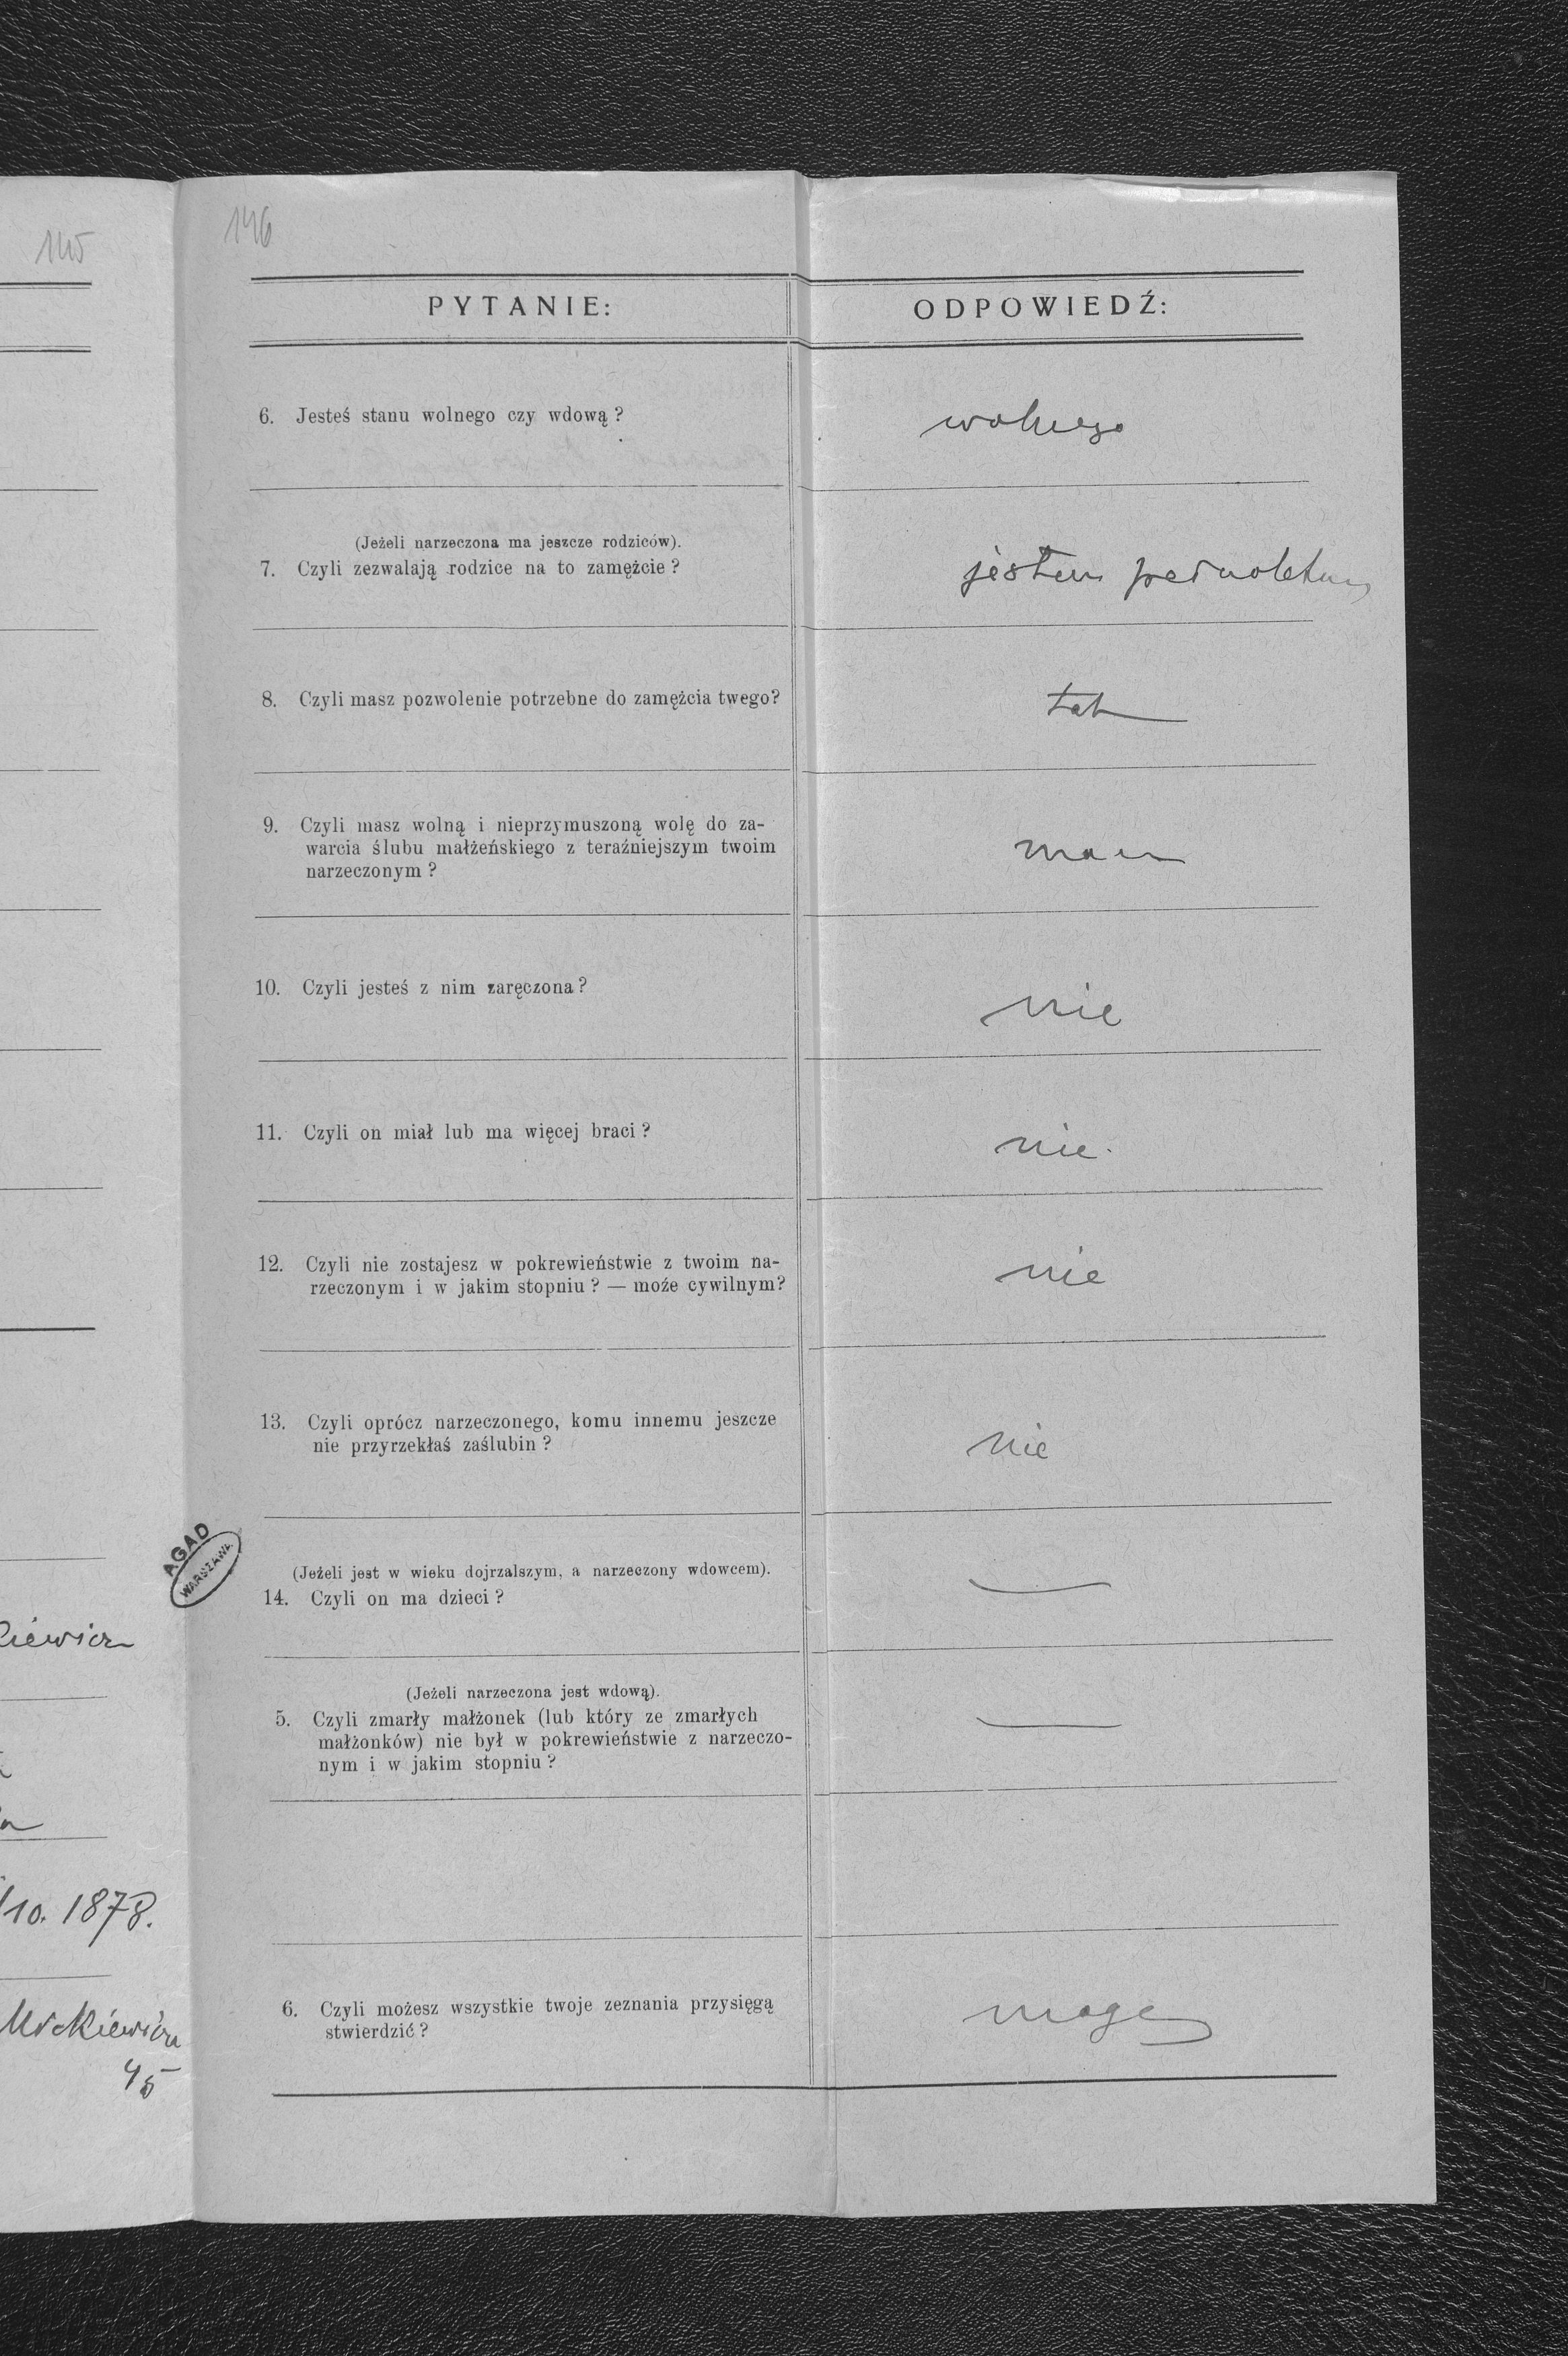 145
146
PYTANIE:
ODPOWIEDŹ:
6. Jesteś stanu wolnego czy wdową?
wolnego
(Jeżeli narzeczona ma jeszcze rodziców).
7. Czyli zezwalają rodzice na to zamężcie?
jestem
8. Czyli masz pozwolenie potrzebne do zamężcia twego?
tak
9. Czyli masz wolną i nieprzymuszoną wolę do za-
warcia ślubu małżeńskiego z teraźniejszym twoim
narzeczonym?
mam
10. Czyli jesteś z nim zaręczona?
nie
11. Czyli on miał lub ma więcej braci?
nie.
12. Czyli nie zostajesz w pokrewieństwie z twoim na-
rzeczonym i w jakim stopniu? — może cywilnym?
nie
13. Czyli oprócz narzeczonego, komu innemu jeszcze
nie przyrzekłaś zaślubin?
nie
AGAD
WARSZAWA
(Jeżeli jest w wieku dojrzalszym, a narzeczony wdowcem).
14. Czyli on ma dzieci?
—
kiewicz
(Jeżeli narzeczona jest wdową).
5. Czyli zmarły małżonek (lub który ze zmarłych
małżonków) nie był w pokrewieństwie z narzeczo-
nym i w jakim stopniu?
—
/10. 1878.
6. Czyli możesz wszystkie twoje zeznania przysięgą
stwierdzić?
mogę
45